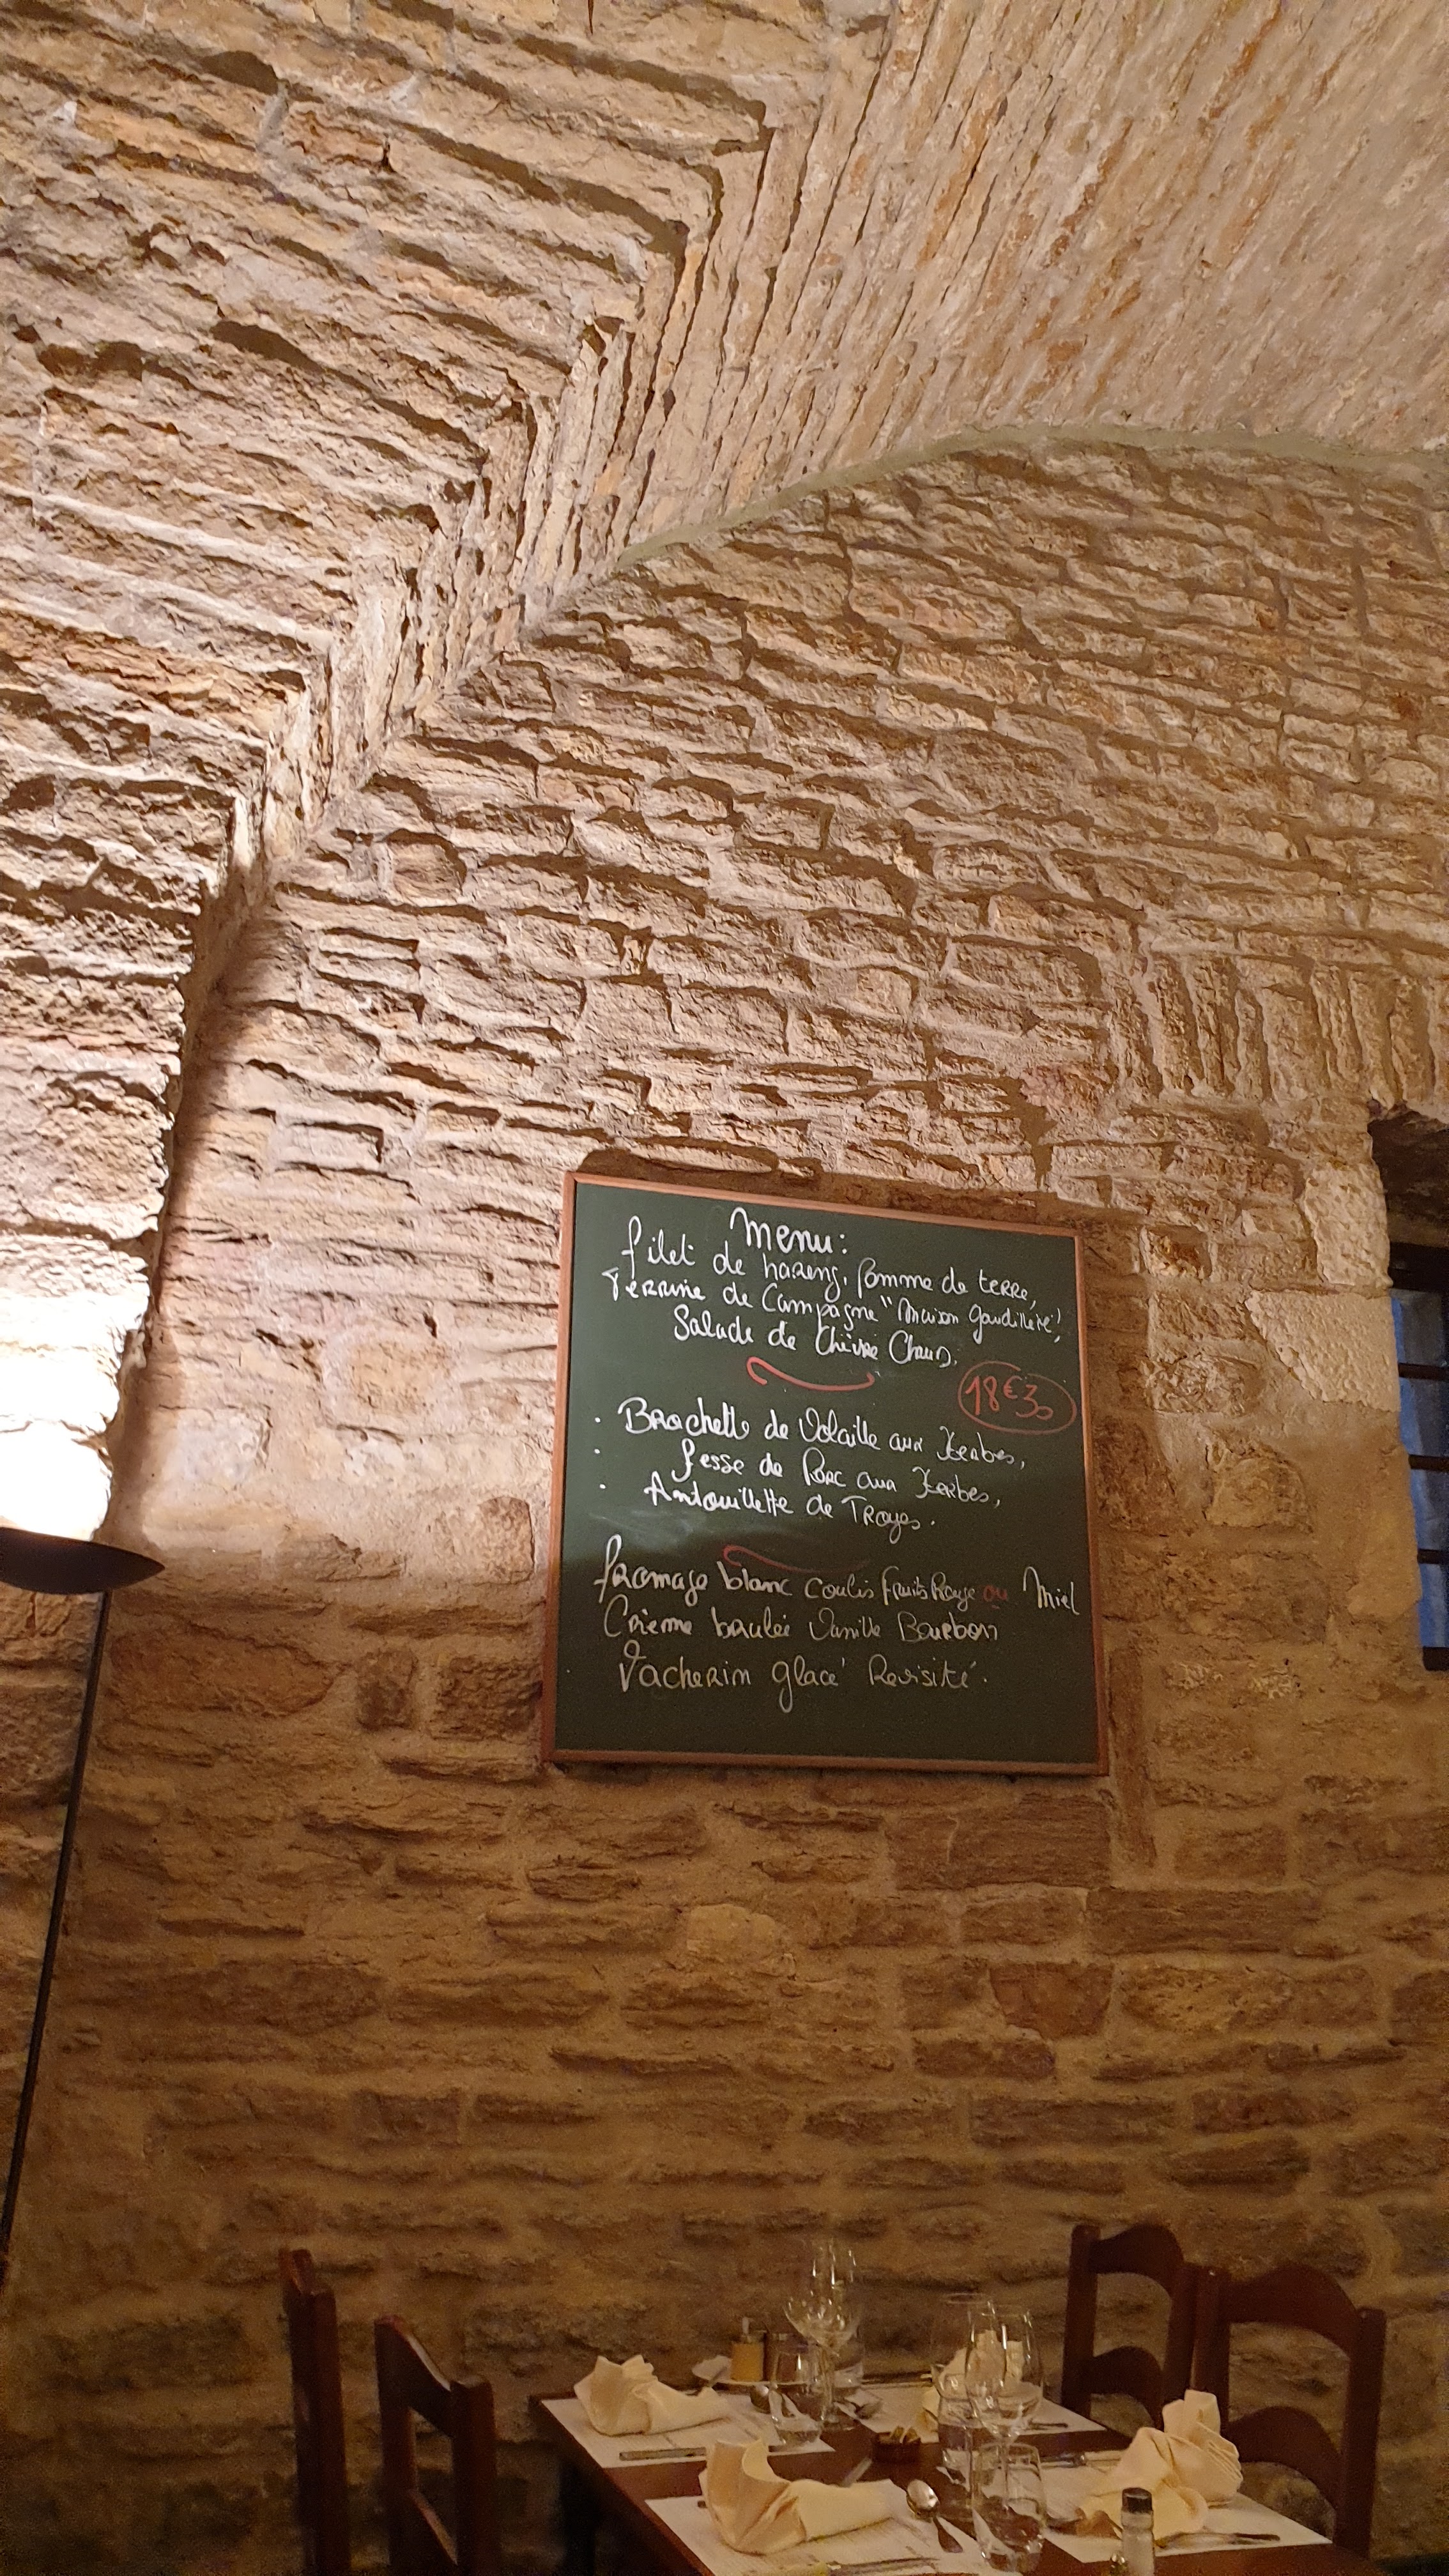 Menu:
filet de hareng, pomme de terre,
Terrine de Campagne "Maison Gaudillère",
Salade de Chèvre Chaud.
18€30
. Brochette de Volaille aux Herbes,
. fesse de Porc aux Herbes,
. Antouillette de Troyes.
fromage blanc coulis fruits Rouge ou Miel
Crème brulée Vanille Bourbon
Vacherin glacé Revisité.